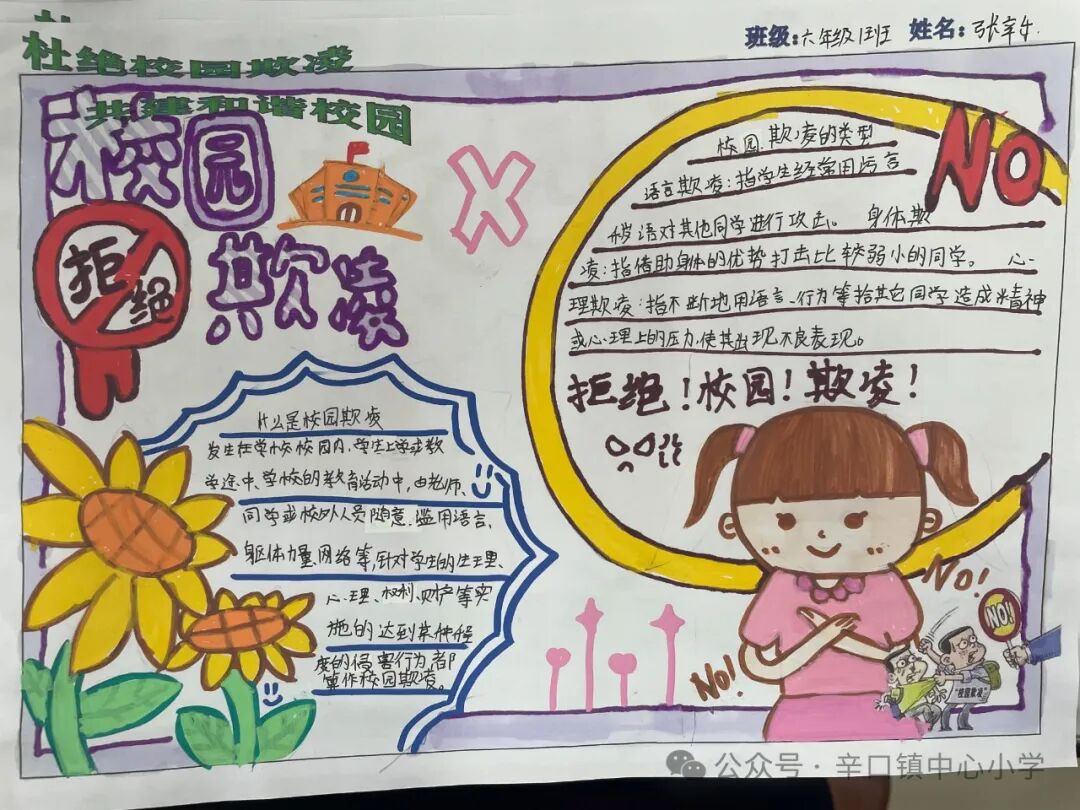 杜绝校园欺凌
共建和谐校园
班级:六年级1班 姓名:张宰乐
校园
欺凌
拒绝
NO
校园欺凌的类型
语言欺凌:指学生经常用污言
秽语对其他同学进行攻击。 身体欺
凌:指借助身体的优势打击比较弱小的同学。 心
理欺凌:指不断地用语言、行为等给其它同学造成精神
或心理上的压力,使其出现不良表现。
拒绝!校园!欺凌!
什么是校园欺凌
发生在学校校园内、学生上学或放
学途中、学校的教育活动中,由老师、
同学或校外人员随意滥用语言、
躯体力量、网络等,针对学生的生理、
心理、权利、财产等实
施的达到某种程
度的侵害行为,都
算作校园欺凌。
No!
No!
NO!
"校园欺凌"
公众号·辛口镇中心小学